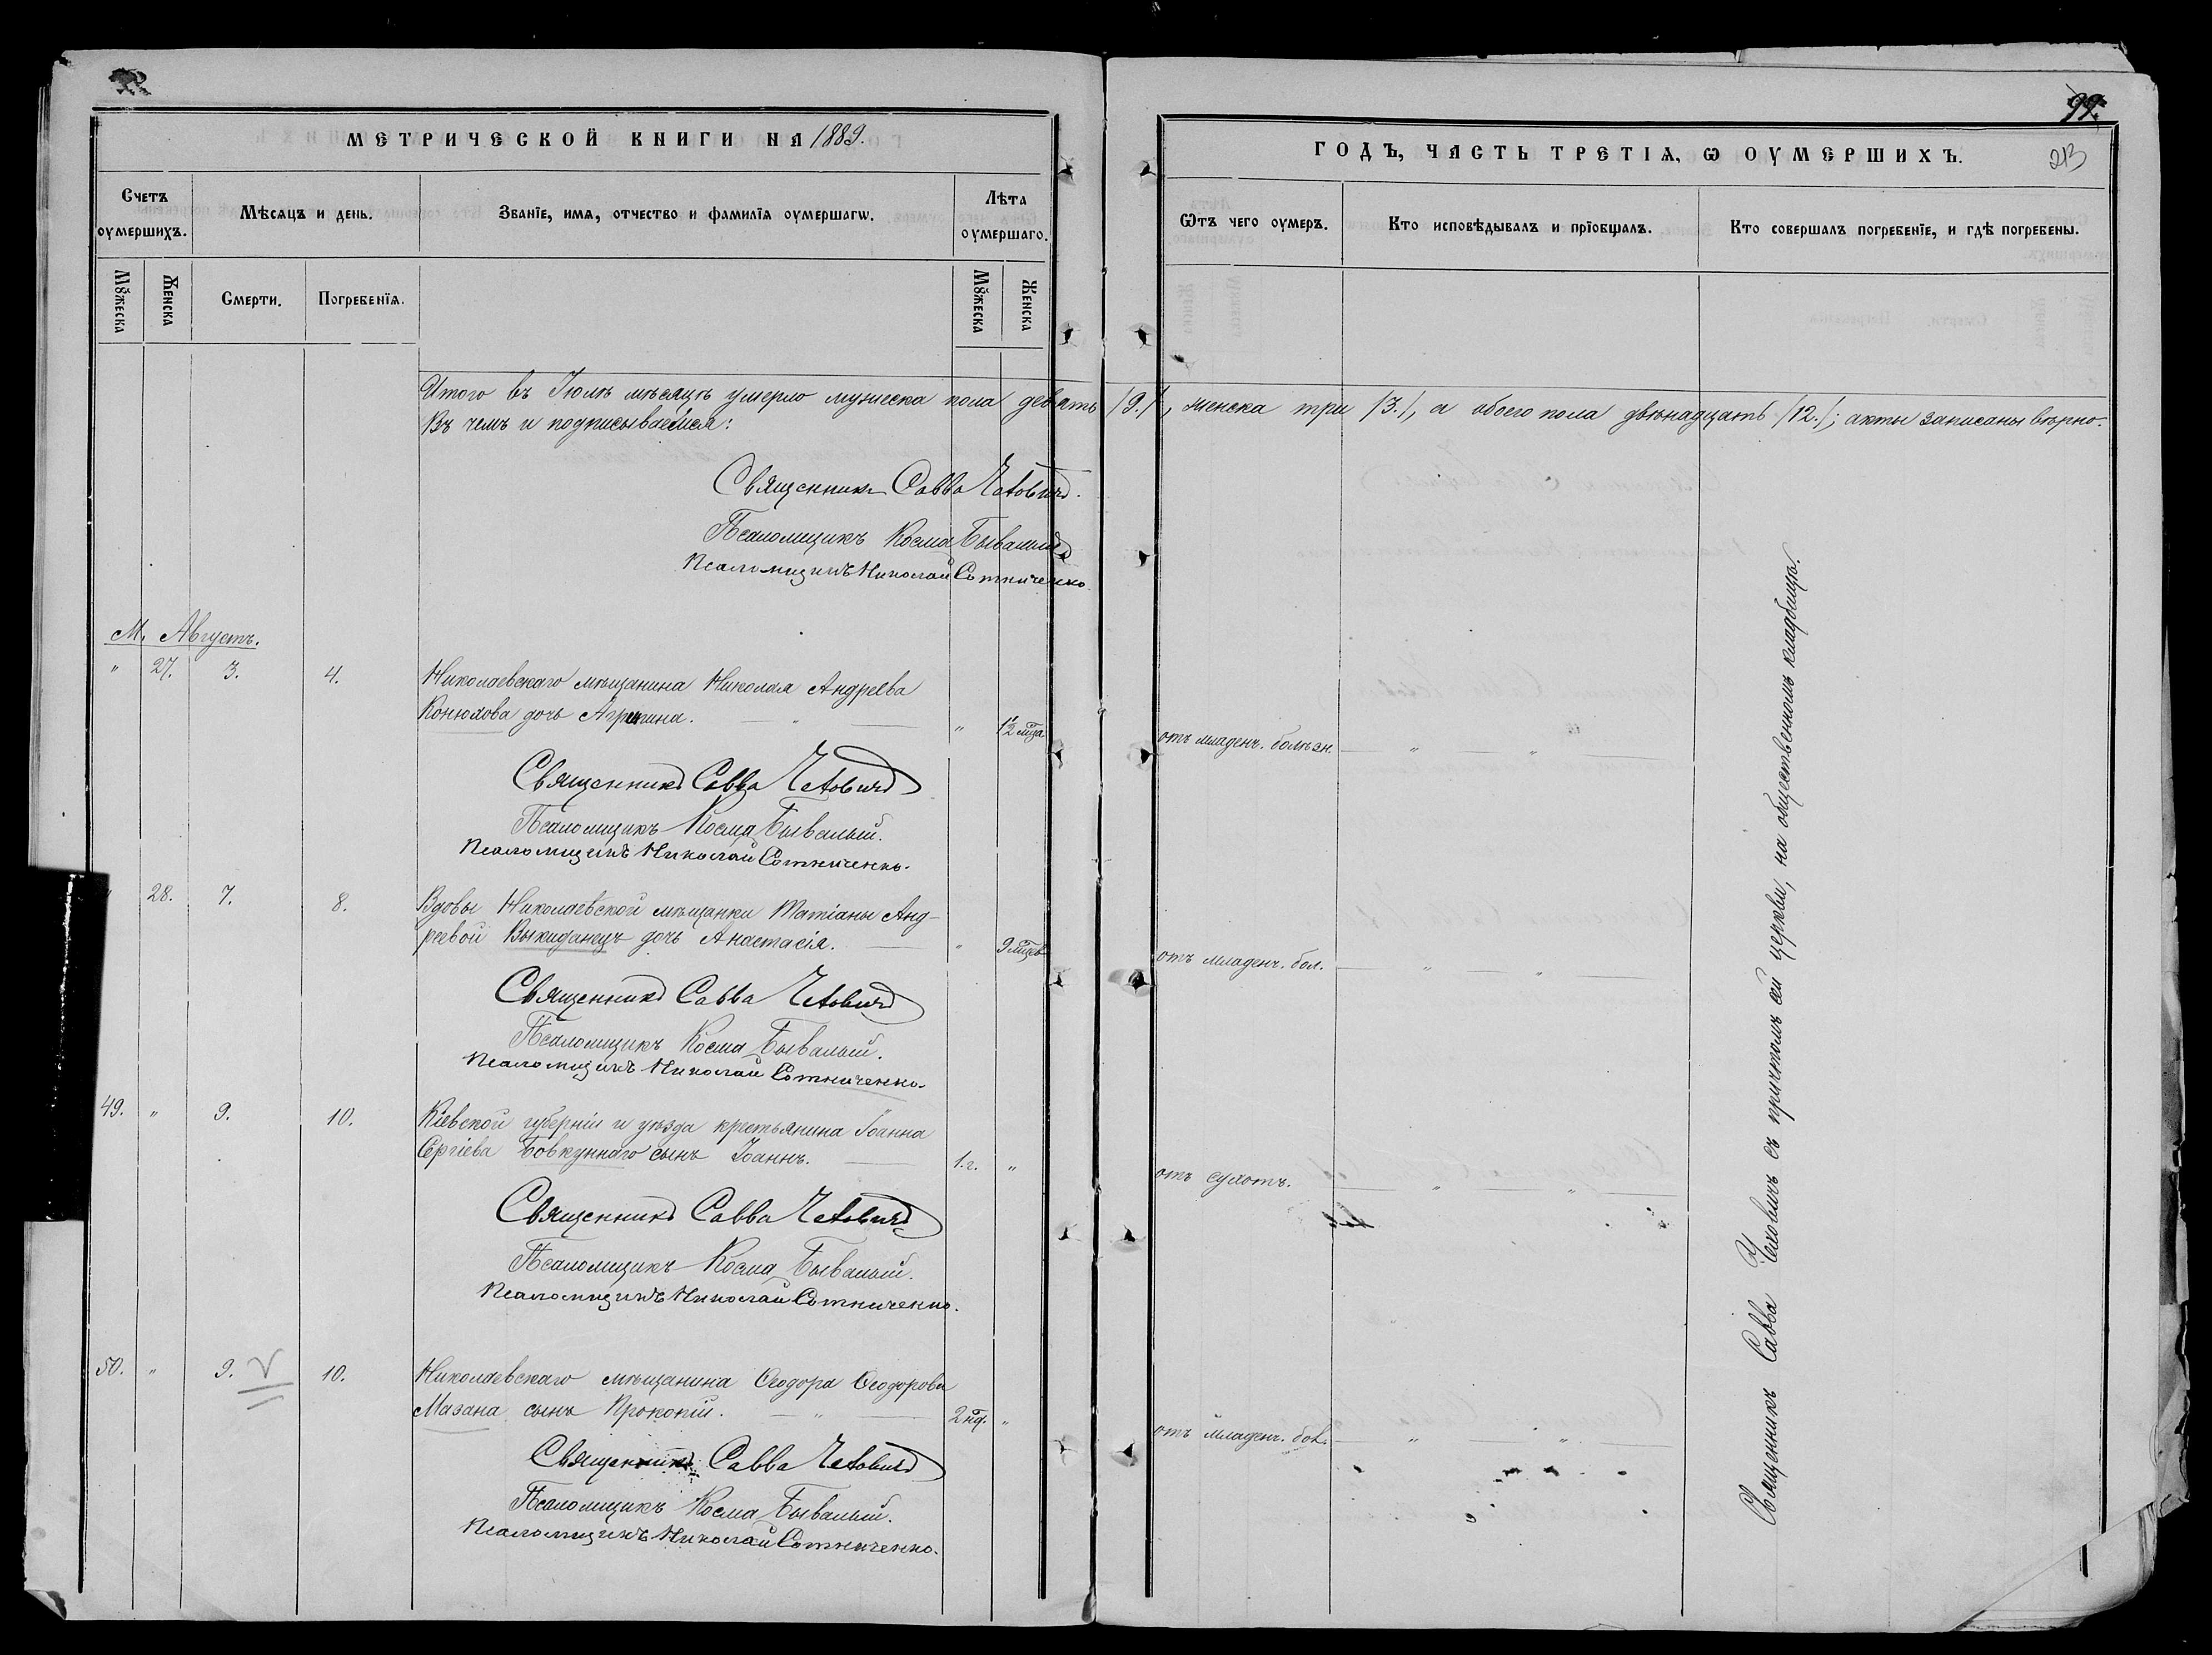 МЕТРИЧЕСКОЙ КНИГИ НА 1889.
ГОДЪ, ЧАСТЬ ТРЕТІѦ, Ѡ ОУМЕРШИХЪ.
99.
213
Счетъ оумершихъ.
Мѣсяцъ и день.
Званїе, имѧ, отчество и фамилїѧ оумершагѡ.
Лѣта оумершаго.
Ѿтъ чего оумеръ.
Кто исповѣдывалъ и прїобщалъ.
Кто совершалъ погребенїе, и гдѣ погребены.
Мꙋжеска
Женска
Смерти.
Погребенїѧ.
Мꙋжеска
Женска
Итого въ Іюлѣ мѣсяцѣ умерло мужеска пола девять /9./, женска три /3./, а обоего пола двѣнадцать /12./; акты записаны вѣрно.
Въ чемъ и подписываемся:
Священникъ Савва Чеховичъ.
Псаломщикъ Косма Бывалый
Псаломщикъ Николай Сотниченко
М. Августъ.
" 27. 3. 4. Николаевскаго мѣщанина Николая Андреева
Конюхова дочь Агрипина. — " — " 1½ мца отъ младенч. болѣзн. — " — " —
Священникъ Савва Чеховичъ
Псаломщикъ Косма Бывалый.
Псаломщикъ Николай Сотниченко.
" 28. 7. 8. Вдовы Николаевской мѣщанки Татіаны Анд-
реевой Выкиданецъ дочь Анастасія. — " 9 мцев отъ младенч. бол. — " — " —
Священникъ Савва Чеховичъ
Псаломщикъ Косма Бывалый.
Псаломщикъ Николай Сотниченко.
49. " 9. 10. Кіевской губерніи и уѣзда крестьянина Іоанна
Сергіева Бовкуннаго сынъ Іоаннъ. — 1.г. " отъ сухотъ. — " — " —
Священникъ Савва Чеховичъ
Псаломщикъ Косма Бывалый.
Псаломщикъ Николай Сотниченко.
50. " 9. 10. Николаевскаго мѣщанина Ѳеодора Ѳеодорова
Мазана сынъ Прокопій. — " — 2 нд. " отъ младенч. бол. — " — " —
Священникъ Савва Чеховичъ
Псаломщикъ Косма Бывалый.
Псаломщикъ Николай Сотниченко.
Священникъ Савва Чеховичъ съ причтомъ сей церкви, на общественномъ кладбищѣ.